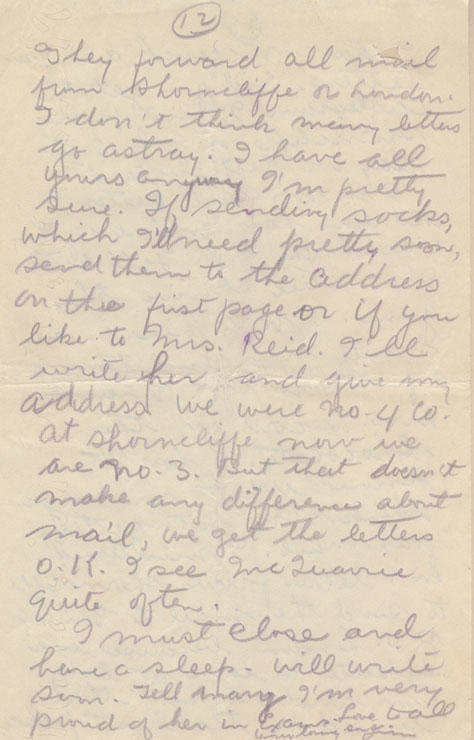 12
They forward all mail
from Shorncliffe or London.
I don't think many letters
go astray. I have all
yours anyway I'm pretty
sure. If sending socks,
which I'll need pretty soon,
send them to the address
on the first page or if you
like to Mrs. Reid. I'll
write her and give my
address. We were No. 4 Co.
at Shorncliffe now we
are No. 3. But that doesn't
make any difference about
mail, we get the letters
O.K. I see McQuarrie
quite often.
I must close and
have a sleep - will write
soon. Tell Mary I'm very
proud of her in Exams. Love to all
your loving